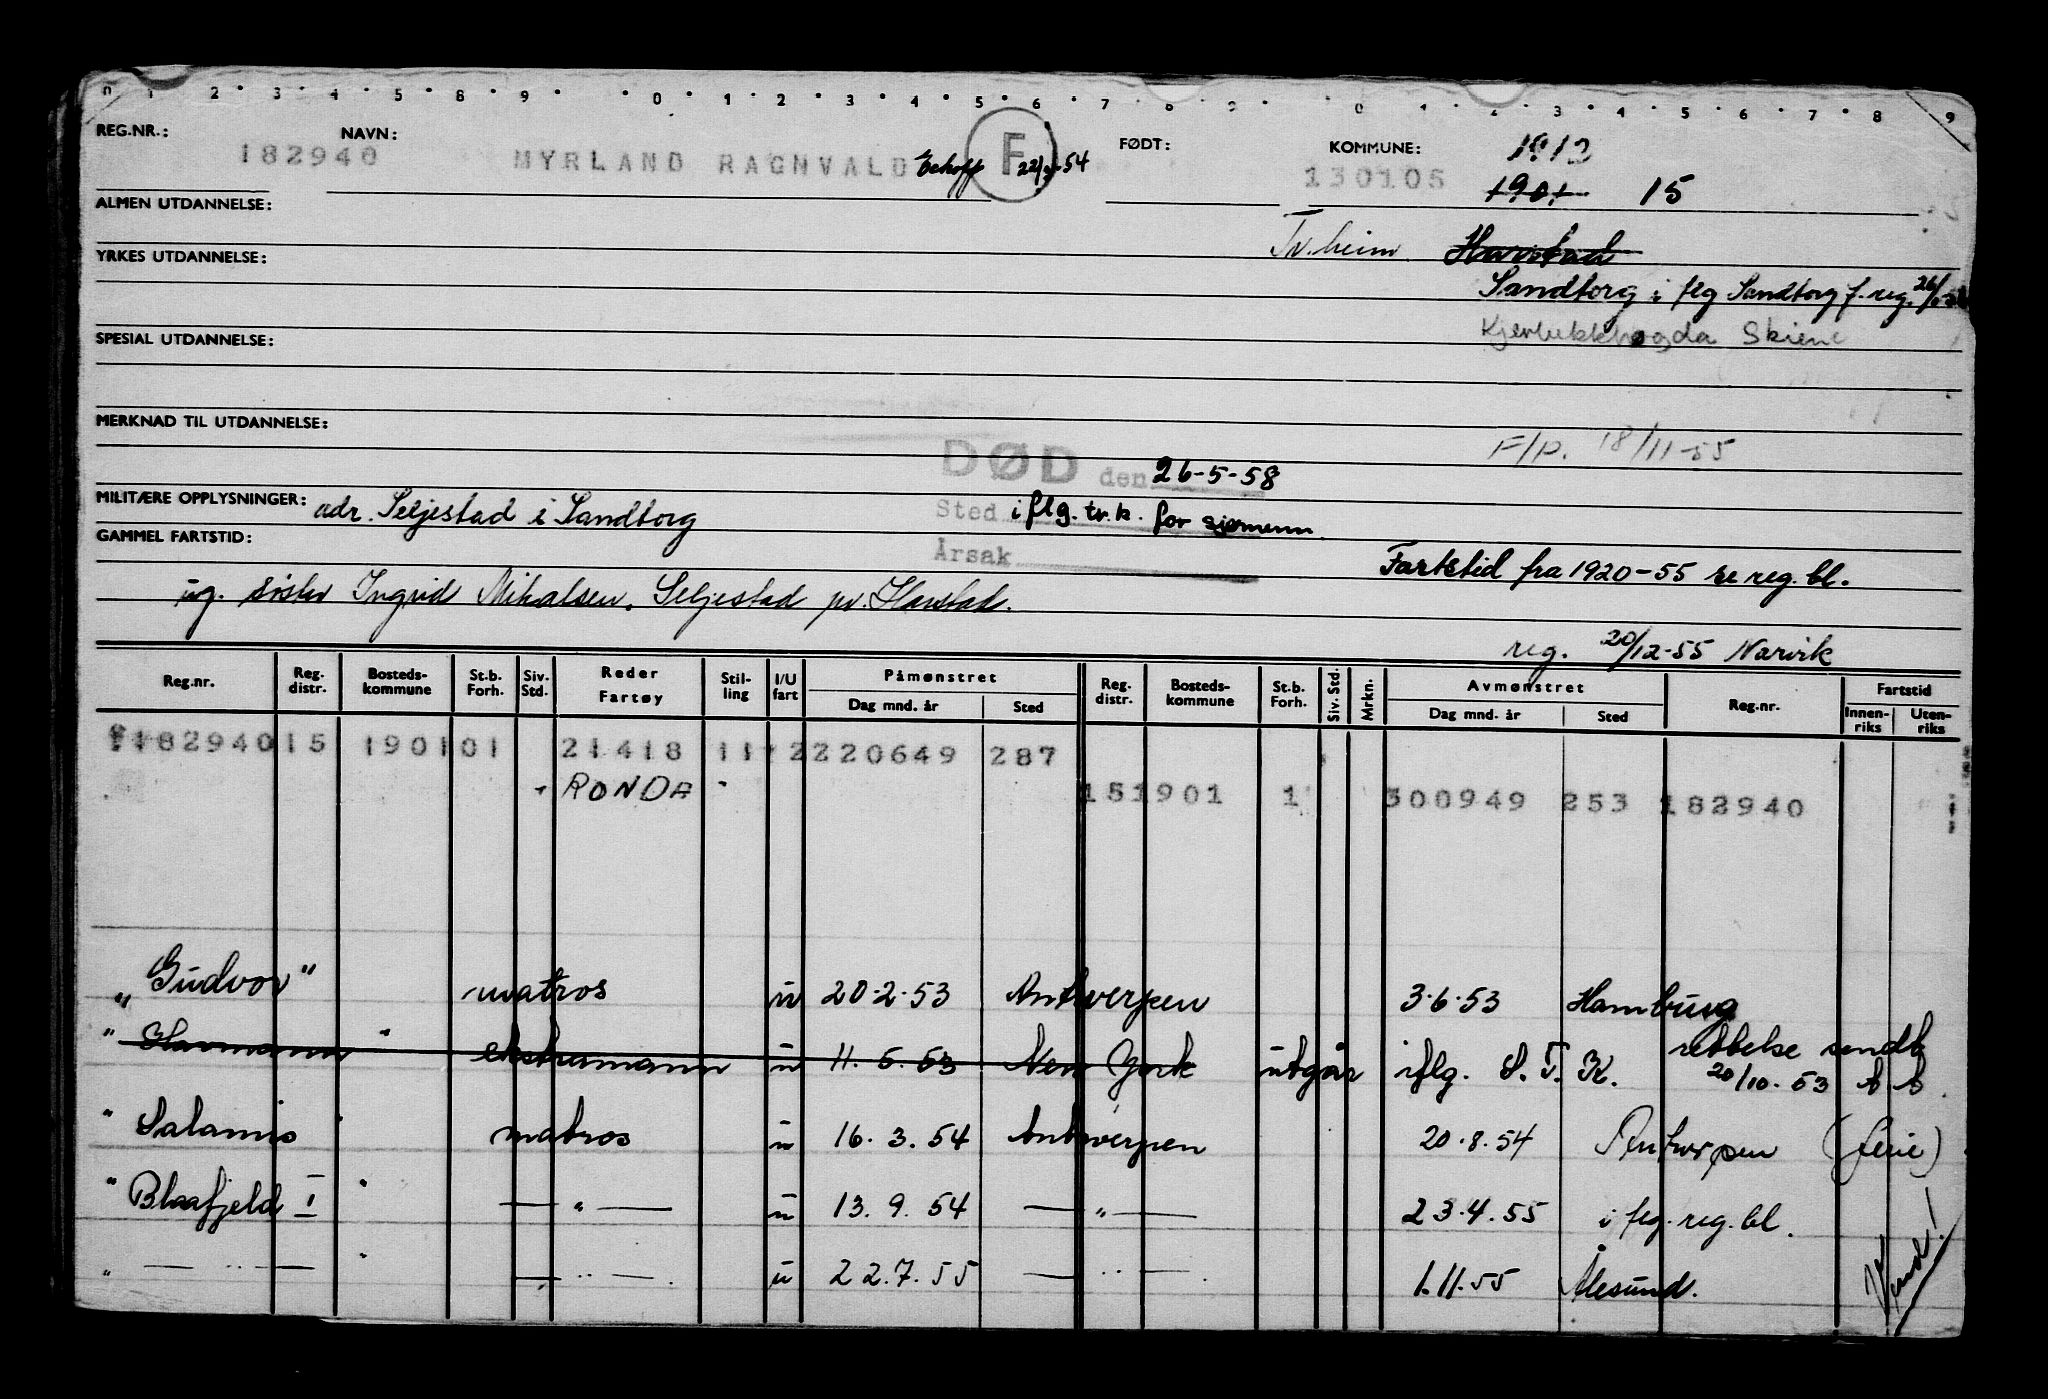 0 1 2 3 4 5 8 9 0 1 2 3 4 5 6 7 8 9 0 1 2 3 4 5 6 7 8 9
REG.NR.: NAVN: FØDT: KOMMUNE: 1913
182940 MYRLAND RAGNVALD F 54 130105 1901 15
ALMEN UTDANNELSE:
Tr.heim Harstad
YRKES UTDANNELSE:
Sandtorg i flg Sandtorg f. reg.
Skien
SPESIAL UTDANNELSE:
MERKNAD TIL UTDANNELSE:
F/P. 18/11-55
DØD den 26-5-58
MILITÆRE OPPLYSNINGER: adr. Seljestad i Sandtorg Sted i flg. tr.k. for sjømenn.
GAMMEL FARTSTID: Årsak
Fartstid fra 1920-55 se reg. bl.
ug. søster Ingrid Mikalsen, Seljestad pr. Harstad.
reg. 20/12-55 Narvik
Reg.nr. Reg. distr. Bosteds-kommune St.b. Forh. Siv. Std. Reder Fartøy Stil-ling I/U fart Påmønstret Dag mnd. år Sted Reg. distr. Bosteds-kommune St.b. Forh. Siv. Std. Mrkn. Avmønstret Dag mnd. år Sted Reg.nr. Fartstid Innen-riks Uten-riks
18294015 190101 21418 11 2220649 287
- RONDA - 151901 1 300949 253 182940
"Gudvor" matros u 20.2.53 Antwerpen 3.6.53 Hamburg
" Havmann " ekstramann u 11.5.53 New York utgår iflg. S.T.K. rettelse sendt
20/10.53
" Salamis " matros u 16.3.54 Antwerpen 20.8.54 Antwerpen (ferie)
" Blaafjeld I " — " — u 13.9.54 — " — 23.4.55 i flg. reg. bl.
" — " — " — " — u 22.7.55 — " — 1.11.55 Ålesund.
Vend!